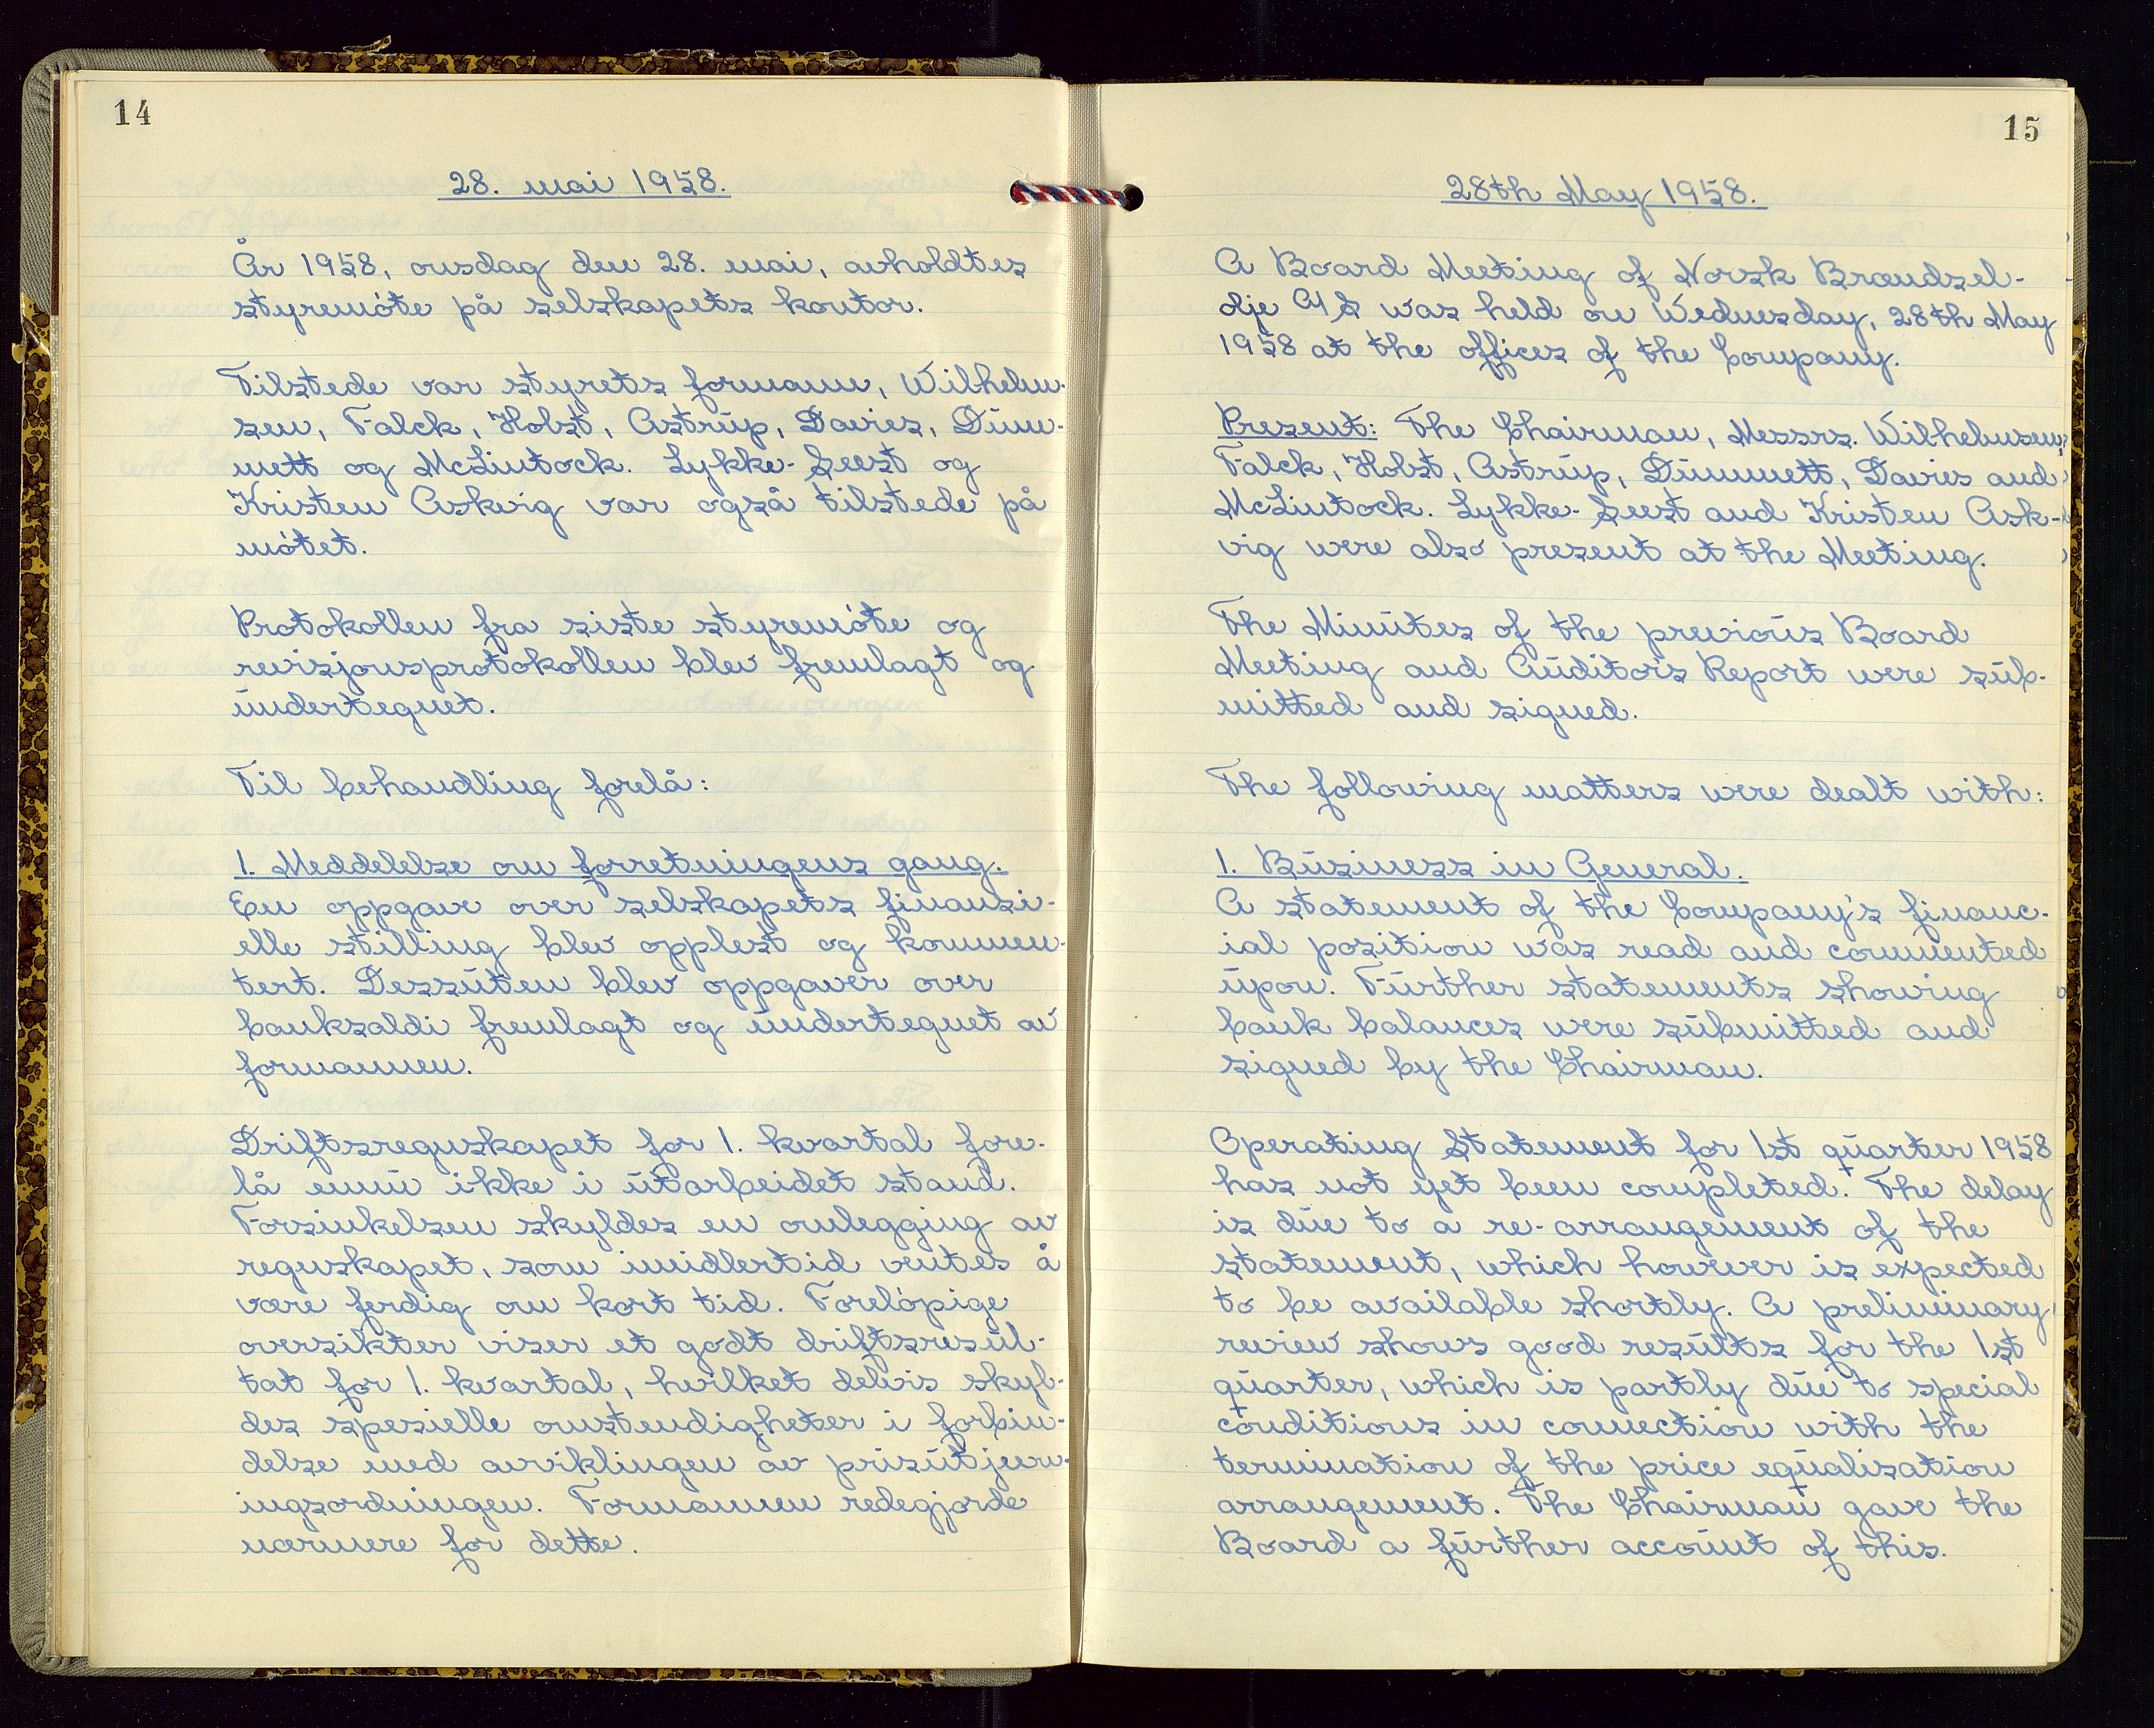 14
28. mai 1958.
År 1958, onsdag den 28. mai, avholdtes
styremöte på selskapets kontor.
Tilstede var styrets formann, Wilhelm-
sen, Falck, Holst, Astrup, Davies, Dum-
mett og McLintock. Lykke-Seest og
Kristen Askvig var også tilstede på
mötet.
Protokollen fra siste styremöte og
revisjonsprotokollen blev fremlagt og
undertegnet.
Til behandling forelå:
1. Meddelelse om forretningens gang.
En oppgave over selskapets finansi-
elle stilling blev opplest og kommen-
tert. Dessuten blev oppgaver over
banksaldi fremlagt og undertegnet av
formannen.
Driftsregnskapet for 1. kvartal fore-
lå ennu ikke i utarbeidet stand.
Forsinkelsen skyldes en omlegging av
regnskapet, som imidlertid ventes å
være ferdig om kort tid. Forelöpige
oversikter viser et godt driftsresul-
tat for 1. kvartal, hvilket delvis skyl-
des spesielle omstendigheter i forbin-
delse med avviklingen av prisutjevn-
ingsordningen. Formannen redegjorde
nærmere for dette.
15
28th May 1958.
A Board Meeting of Norsk Brændsel-
olje A/S was held on Wednesday, 28th May
1958 at the offices of the Company.
Present: The Chairman, Messrs. Wilhelmsen,
Falck, Holst, Astrup, Dummett, Davies and
McLintock. Lykke-Seest and Kristen Ask-
vig were also present at the Meeting.
The Minutes of the previous Board
Meeting and Auditors Report were sub-
mitted and signed.
The following matters were dealt with:
1. Business in General.
A statement of the Company's financ-
ial position was read and commented
upon. Further statements showing
bank balances were submitted and
signed by the Chairman.
Operating Statement for 1st quarter 1958
has not yet been completed. The delay
is due to a re-arrangement of the
statement, which however is expected
to be available shortly. A preliminary
review shows good results for the 1st
quarter, which is partly due to special
conditions in connection with the
termination of the price equalisation
arrangement. The Chairman gave the
Board a further account of this.